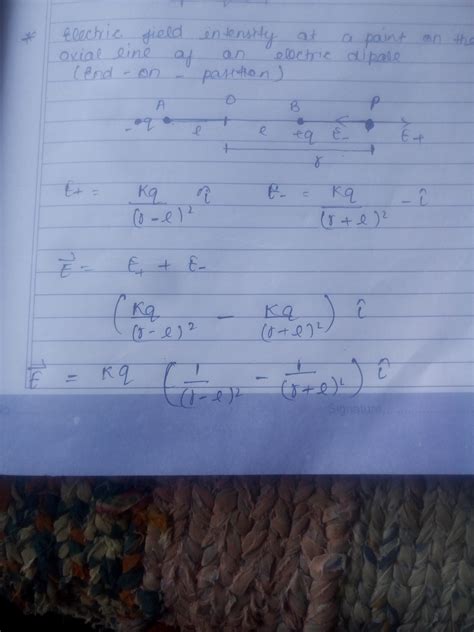 * Electric field intensity at a point on the
axial line of an electric dipole
(End - on - position)
A O B P
-q l l +q E- E+
r
E+ = Kq/(r-l)² î E- = Kq/(r+l)² - î
E⃗ = E+ + E-
(Kq/(r-l)² - Kq/(r+l)²) î
E⃗ = Kq (1/(r-l)² - 1/(r+l)²) î